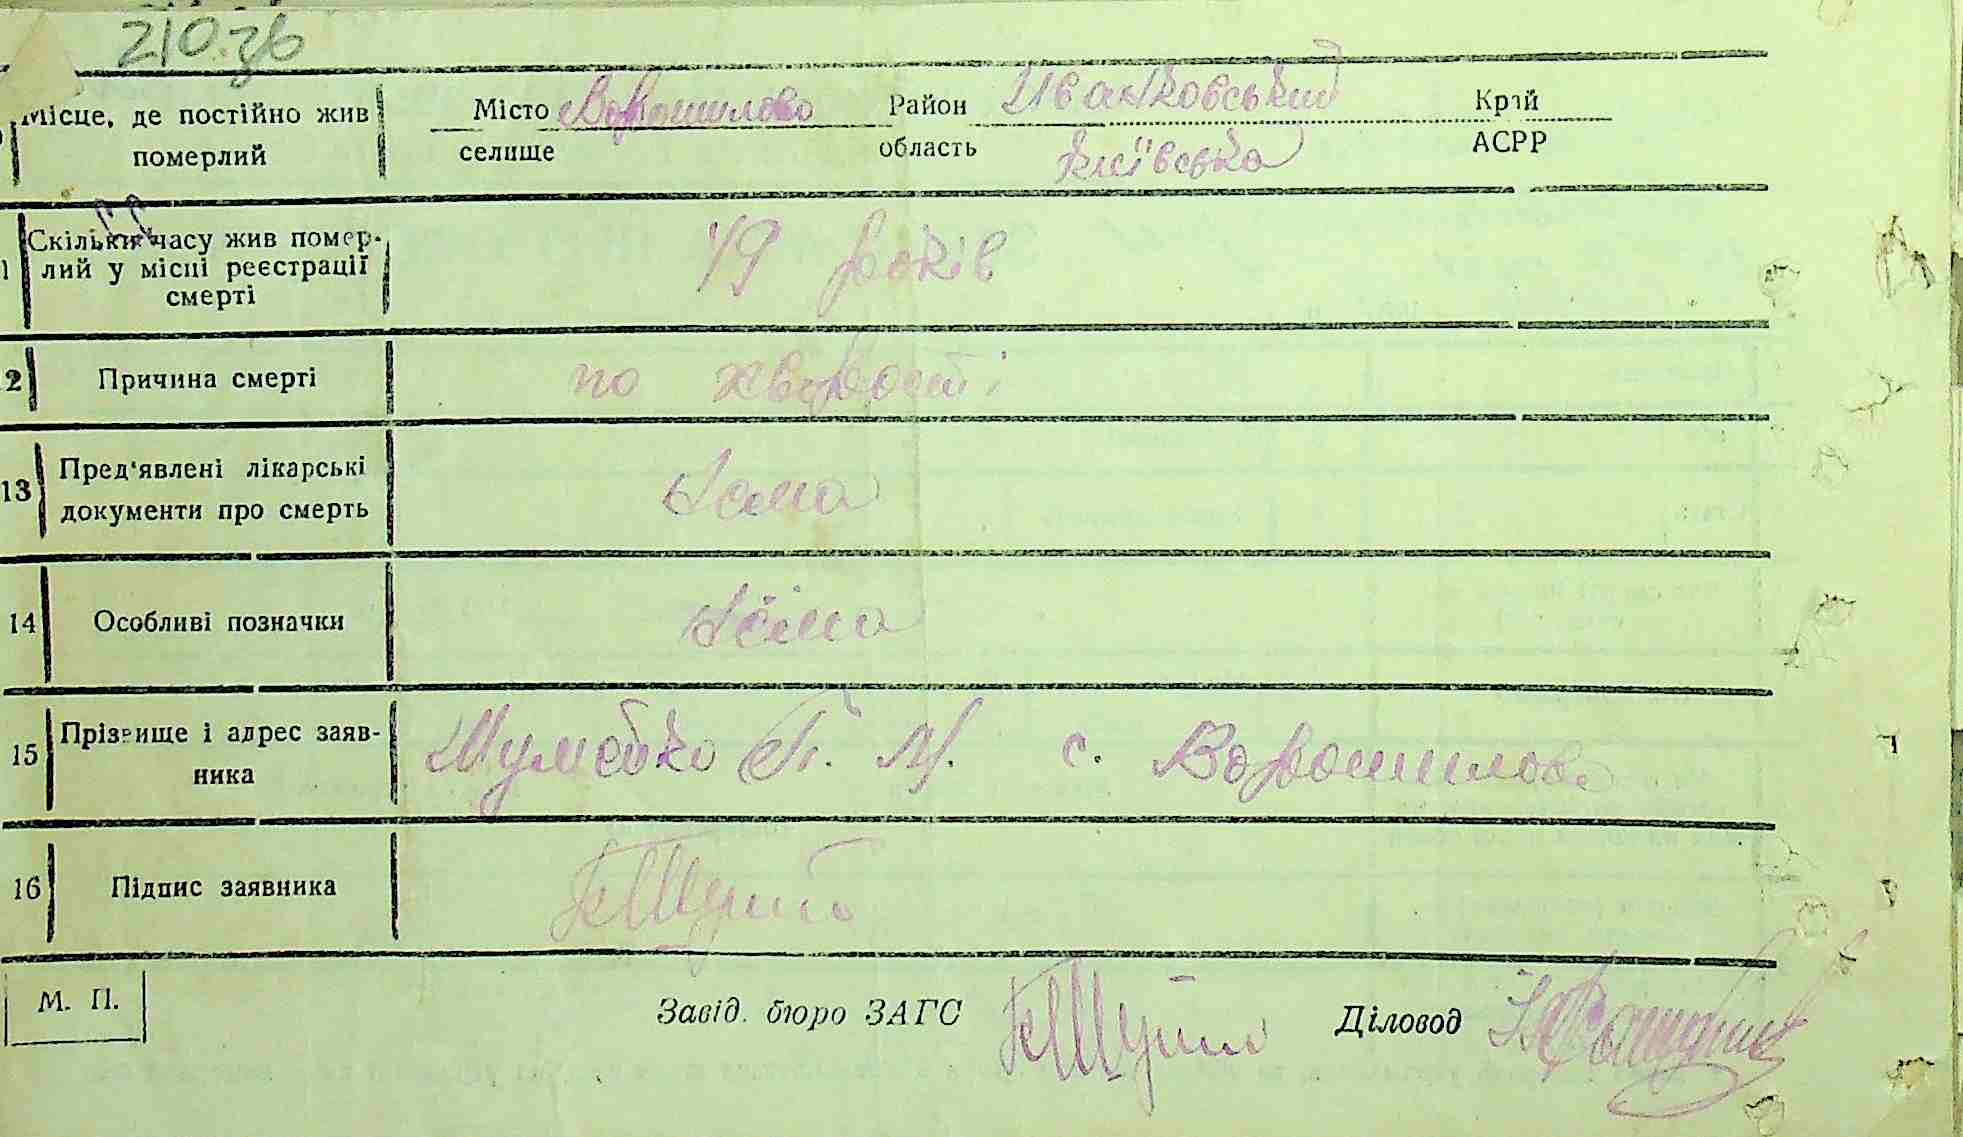 210.зв
Місце, де постійно жив померлий
Місто Ворошилово Район Иванковський Край
селище область Київська АСРР
Скільки часу жив помер-
лий у місці реєстрації
смерті
49 років
2 Причина смерті по хворості
13 Пред'явлені лікарські
документи про смерть
14 Особливі позначки
15 Прізвище і адрес заяв-
ника
с. Ворошилово
16 Підпис заявника
М. П. Завід. бюро ЗАГС Діловод